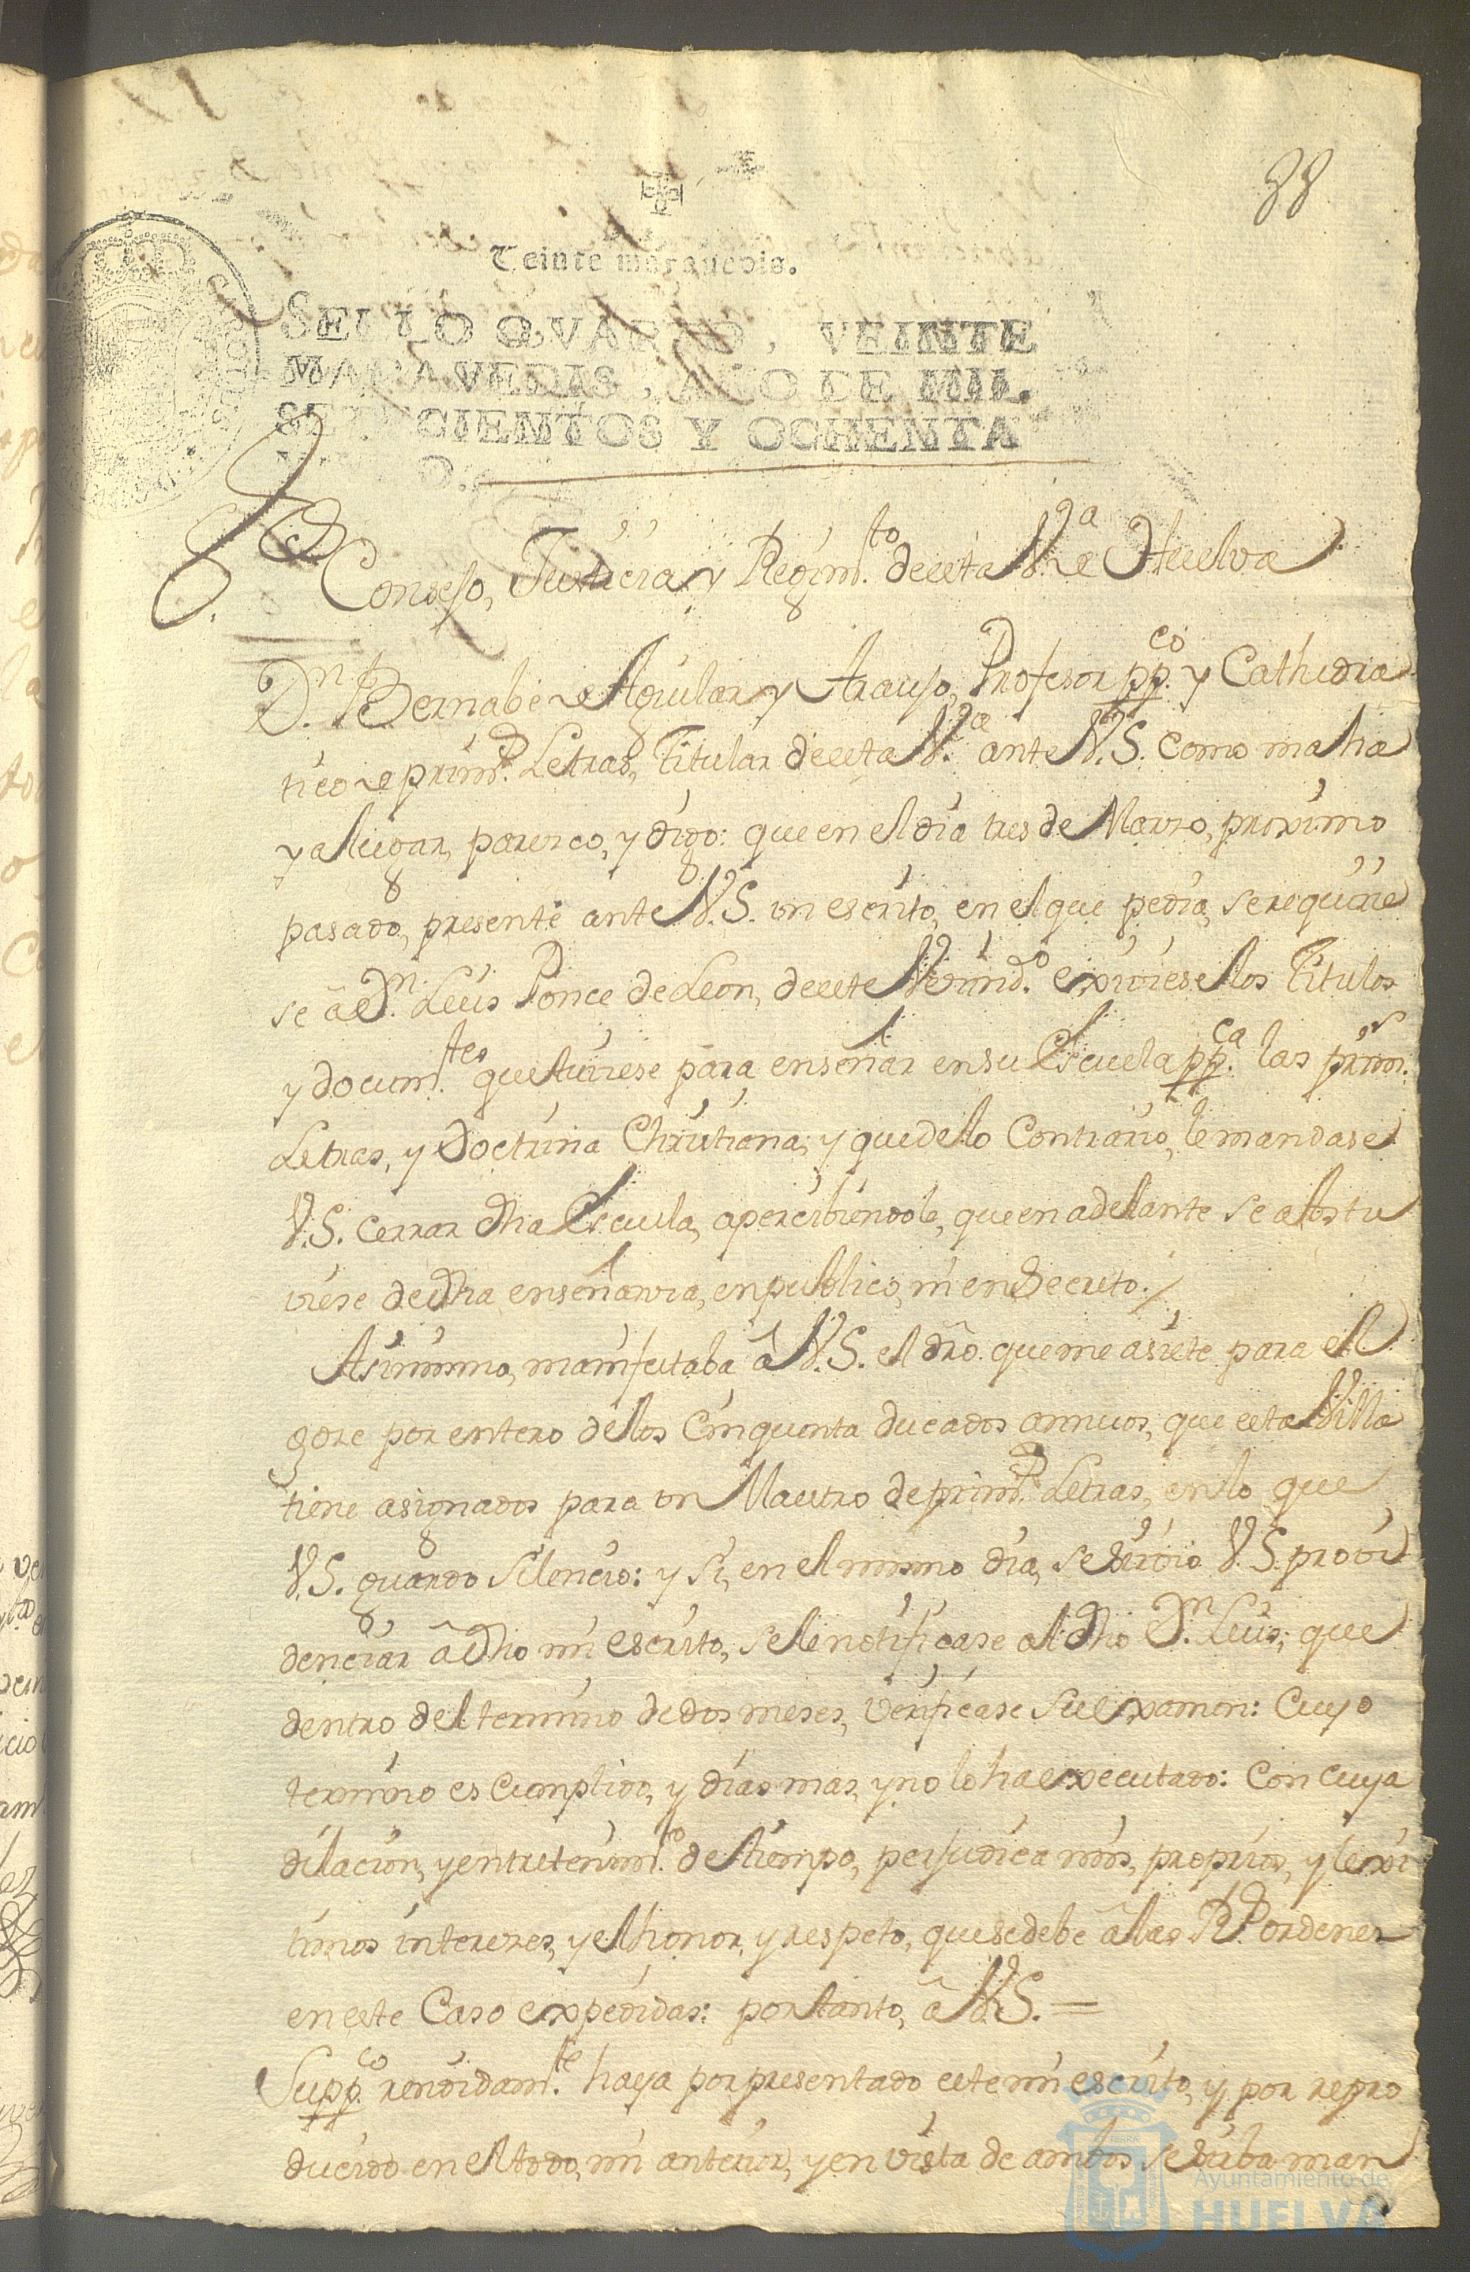 88
Teinte marauedis.
SELLO QVARTO, VEINTE
MARAVEDIS, AÑO DE MIL
SETECIENTOS Y OCHENTA
Consejo, Justicia y Regim.to de esta V.a de Huelva
D.n Bernabe de Aguilar y Araujo, Profesor pp.co y Cathedra
tico de prim.s Letras, Titular de esta V.a ante V.S. como mas ha
ya lugar, parezco, y digo: que en el dia tres de Marzo, proximo
pasado, presenté ante V.S. un escrito, en el que pedia, se requirie
se â D.n Luis Ponce de Leon, de este Vecind.o exiviese los Titulos
y docum.tos que tuviese para enseñar en su Escuela pp.ca las prim.s
Letras, y Doctrina Christiana; y que de lo Contrario, le mandase
V.S. cerrar dha Escuela, apercibiendole, que en adelante se abstu
viese de dha enseñanza, en publico, ni en Secreto./
Asimismo, manifestaba â V.S. el dro. que me asiste para el
goze por entero de los Cinquenta ducados annuos, que esta Villa
tiene asignados para un Maestro de prim.s Letras, en lo que
V.S. guardo silencio: y si, en el mismo dia, se sirvio V.S. provi
denciar â dho mi escrito, se le notificase al dho D.n Luis; que
dentro del termino de dos meses, verificase su examen: Cuyo
termino es Cumplido, y dias mas, y no lo ha executado: Con cuya
dilacion, y entretenim.to de tiempo, perjudica mis, proprios, y lexi
timos intereses, y el honor, y respeto, que se debe â las R.s ordenes
en este Caso expedidas: por tanto, â V.S. =
Supp.co rendidam.te haya por presentado este mi escrito, y por repro
ducido en el todo, mi anterior, y en vista de ambos se sirba man
Ayuntamiento de
HUELVA